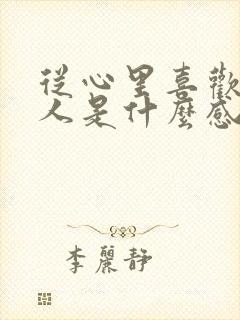 從心里喜歡
人是什麼感
李麗靜